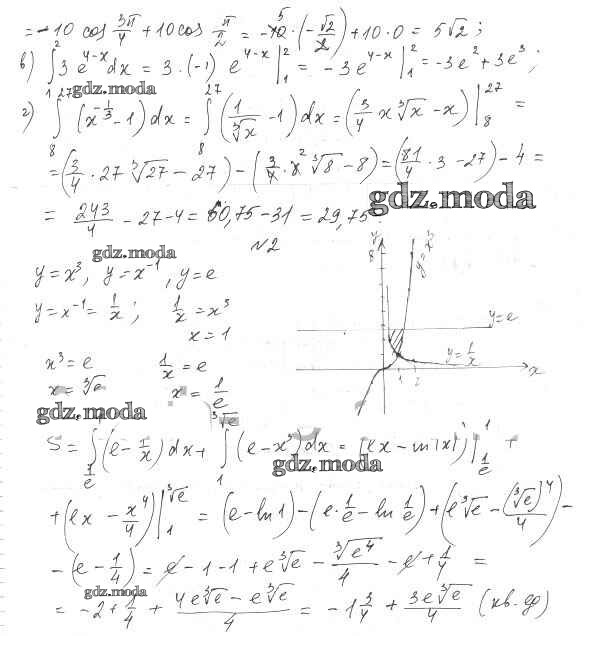 = -10 cos 3π/4 + 10 cos π/2 = -10 · (-√2/2) + 10·0 = 5√2 ;
в) ∫₁² 3 e^(4-x) dx = 3·(-1) e^(4-x) |₁² = -3 e^(4-x) |₁² = -3e² + 3e³ ;
gdz.moda
г) ∫₈²⁷ (x^(-1/3) - 1) dx = ∫₈²⁷ (1/∛x - 1) dx = (3/4 x ∛x - x) |₈²⁷ =
= (3/4 · 27 ∛27 - 27) - (3/4 · 8 ∛8 - 8) = (81/4 · 3 - 27) - 4 =
gdz.moda
= 243/4 - 27 - 4 = 60,75 - 31 = 29,75.
N2
gdz.moda
y = x³, y = x⁻¹, y = e
y = x⁻¹ = 1/x ; 1/x = x³
x = 1
x³ = e 1/x = e
x = ∛e x = 1/e
y
8
y = x³
y = e
y = 1/x
1 2 x
gdz.moda
S = ∫_(1/e)^1 (e - 1/x) dx + ∫₁^(∛e) (e - x³) dx = (ex - ln|x|) |_(1/e)^1 +
gdz.moda
+ (ex - x⁴/4) |₁^(∛e) = (e - ln1) - (e · 1/e - ln 1/e) + (e∛e - (∛e)⁴/4) -
- (e - 1/4) = e - 1 - 1 + e∛e - ∛e⁴/4 - e + 1/4 =
gdz.moda
= -2 + 1/4 + (4e∛e - e∛e)/4 = -1 3/4 + 3e∛e/4 (кв. ед)